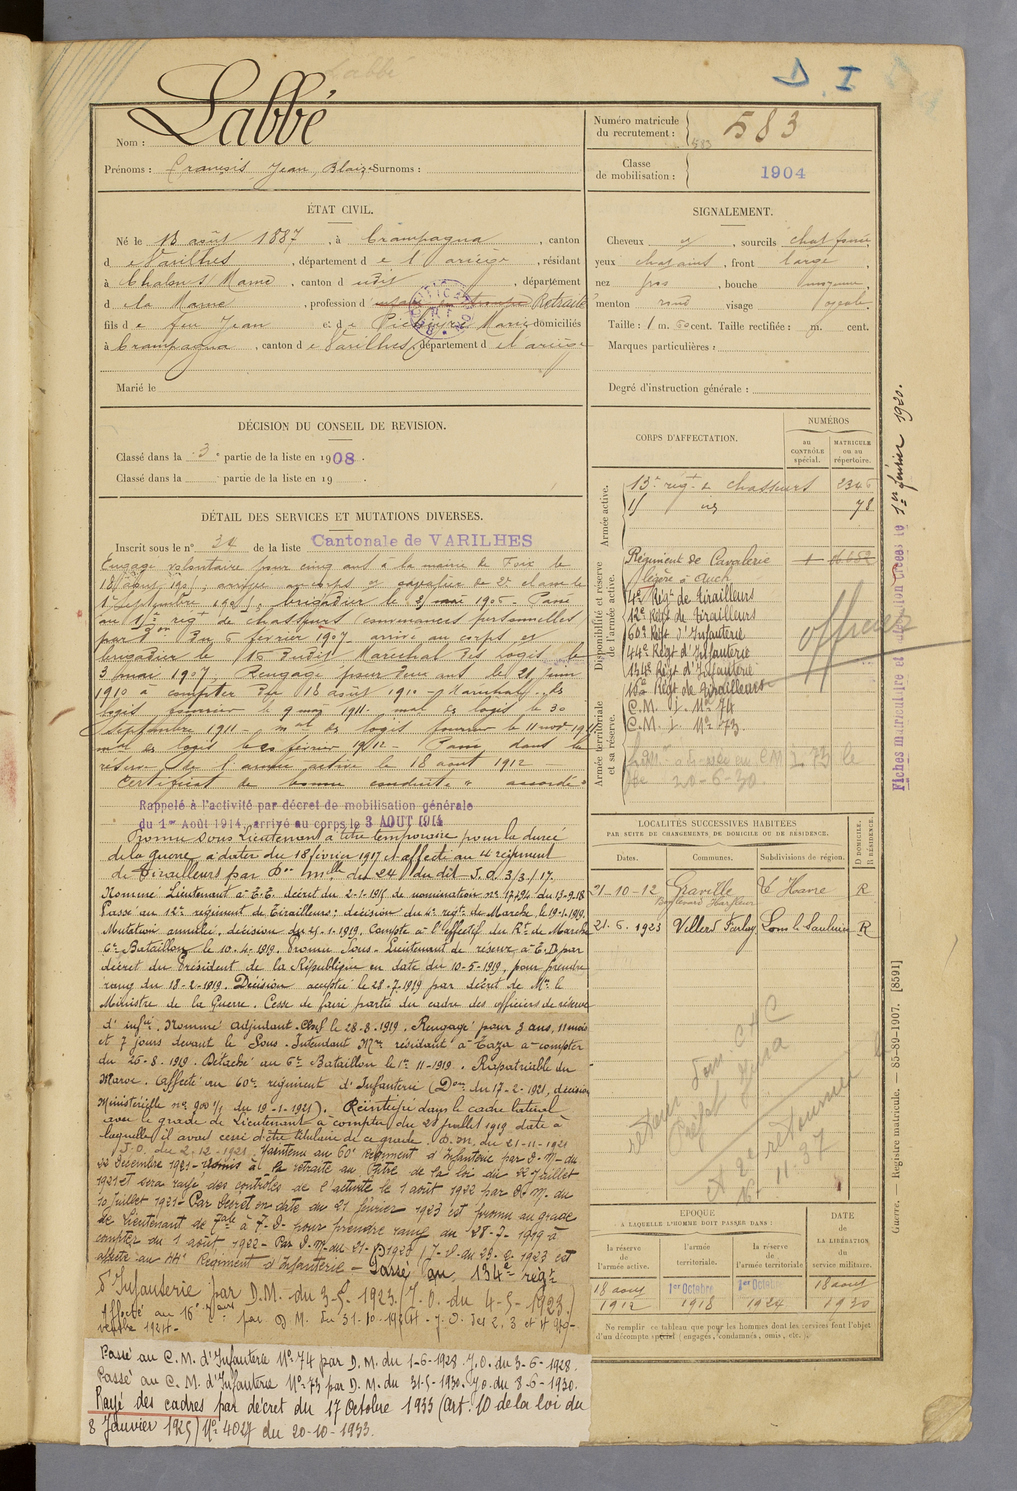 D. I
Labbé
Nom :
Prénoms : François, Jean, Blaize Surnoms :
Numéro matricule du recrutement : 583
Classe de mobilisation : 1904
ÉTAT CIVIL.
Né le 18 août 1887, à Crampagna, canton
de Varilhes, département de l'ariège, résidant
à Chalons Marne, canton dudit, département
de la Marne, profession d Retraité
fils de feu Jean et de Marie domiciliés
à Crampagna, canton de Varilhes, département de l'ariège
Marié le
SIGNALEMENT.
Cheveux , sourcils chat foncé
yeux chatains, front large
nez gros, bouche moyenne,
menton rond visage ovale.
Taille : 1 m. cent. Taille rectifiée : m. cent.
Marques particulières :
Degré d'instruction générale :
DÉCISION DU CONSEIL DE REVISION.
Classé dans la 3e partie de la liste en 1908.
Classé dans la partie de la liste en 19 .
DÉTAIL DES SERVICES ET MUTATIONS DIVERSES.
Inscrit sous le n° 34 de la liste Cantonale de VARILHES
Engagé volontaire pour cinq ans à la mairie de Foix le
18 août 1905, arrivé au corps et cavalier de 2e classe le
1er septembre 1905, brigadier le 1906. Passé
au rég. de chasseurs (convenances personnelles
du 6 février 1907 arrivé au corps et
brigadier le 16 dudit Maréchal des logis le
3 mai 1907, Rengagé pour deux ans le 21 juin
1910 à compter du 18 août 1910 - Maréchal des
logis fourrier le 9 mai 1911. mal des logis le 30
septembre 1911 - mal des logis fourrier le 11 nov 1911
mal des logis le 20 février 1912 - Passé dans la
réserve de l'armée active le 18 août 1912
Certificat de bonne conduite accordé
Rappelé à l'activité par décret de mobilisation générale
du 1er Août 1914, arrivé au corps le 3 AOUT 1914
Promu Sous Lieutenant à titre temporaire pour la durée
de la guerre à dater du 18 février 1917 et affecté au 4e régiment
de Tirailleurs par Don Mlle du 24 dudit J.O. 3/3/17.
Nommé Lieutenant à T.T. décret du 2-1-1915 de nomination n° 17.194 du 13-9-18
Passé au 12e régiment de Tirailleurs; décision du 4e régt de Marche le 19-1-1919.
Mutation annulée, décision du 25-1-1919. Compte à l'effectif du Rt de Marche
6e Bataillon le 10-4-1919. Promu Sous-Lieutenant de réserve à T.D par
décret du Président de la République en date du 10-5-1919, pour prendre
rang du 18-2-1919. Décision acceptée le 28-7-1919 par décret de Mr le
Ministre de la Guerre. Cesse de faire partie du cadre des officiers de réserve
d'infie. Nommé Adjudant-Chef le 28-8-1919. Rengagé pour 3 ans, 11 mois
et 7 jours devant le Sous-Intendant Mre résidant à Taza à compter
du 26-8-1919. Détaché au 6e Bataillon le 1er-11-1919. Rapatriable du
Maroc. Affecté au 60e régiment d'Infanterie (Don du 17-2-1921, décision
Ministérielle n° 900 1/1 du 19-1-1921). Réintégré dans le cadre latéral
avec le grade de Lieutenant à compter du 28 juillet 1919 date à
laquelle il avait cessé d'être titulaire de ce grade. D.M. du 21-11-1921
J.O. du 2-12-1921. Maintenu au 60e régiment d'Infanterie par D-M-du
22 Décembre 1921 - admis à la retraite au titre de la loi du 22 Juillet
1921 et sera rayé des contrôles de l'activité le 1 août 1922 par D.M. du
10 juillet 1921 - Par décret en date du 21 février 1923 est promu au grade
de Lieutenant de rve à T-D- pour prendre rang du 28-7-1919 à
compter du 1 août 1922 - Par D-M-du 21- 1923 (J-O-du 23-2-1923 est
affecté au 44e Régiment d'Infanterie - Passé au 134e régt
d'Infanterie par D.M. du 3-5-1923 (J.O. du 4-5-1923.)
Affecté au 16e par D M. du 31-10-1924 - J.O. des 2.3 et 4 9bre
1924-
Passé au C.M. d'Infanterie N° 74 par D.M. du 1-6-1928. J.O. du 3-6-1928.
Passé au C.M. d'Infanterie N° 73 par D.M. du 31-5-1930. J.O. du 8-6-1930.
Rayé des cadres par décret du 17 Octobre 1933 (Art. 10 de la loi du
8 Janvier 1925) N° 4027 du 20-10-1933.
CORPS D'AFFECTATION.
NUMÉROS
au CONTRÔLE spécial.
MATRICULE ou au répertoire.
Armée active.
13e régt de chasseurs 2345
78
Disponibilité et réserve de l'armée active.
Régiment de Cavalerie
légère à Auch
4e Régt de Tirailleurs
12e Régt de Tirailleurs
60e Régt d'Infanterie
44e Régt d'Infanterie
134e Régt d'Infanterie
16e Régt de Tirailleurs
officier
Armée territoriale et sa réserve.
C.M. I. N° 74
C.M. I. N° 73
20-6-30.
LOCALITÉS SUCCESSIVES HABITÉES
PAR SUITE DE CHANGEMENTS DE DOMICILE OU DE RÉSIDENCE.
Dates. Communes. Subdivisions de région. D DOMICILE. R RÉSIDENCE.
21-10-12 Graville Le Havre R
Boulevard Harfleur
21.6.1923 Villers Farlay Lons le Saulnier R
Préfet Jura
et retourné
11.37
ÉPOQUE
À LAQUELLE L'HOMME DOIT PASSER DANS :
DATE de LA LIBÉRATION du service militaire.
la réserve de l'armée active. l'armée territoriale. la réserve de l'armée territoriale
18 août 1912 1er Octobre 1918 1er Octobre 1924 18 août 1930
Ne remplir ce tableau que pour les hommes dont les services font l'objet
d'un décompte spécial (engagés, condamnés, omis, etc.).
Fiches matriculaire et créées le 1er février 1920.
Guerre. — Registre matricule. — 85-89-1907. [8591]